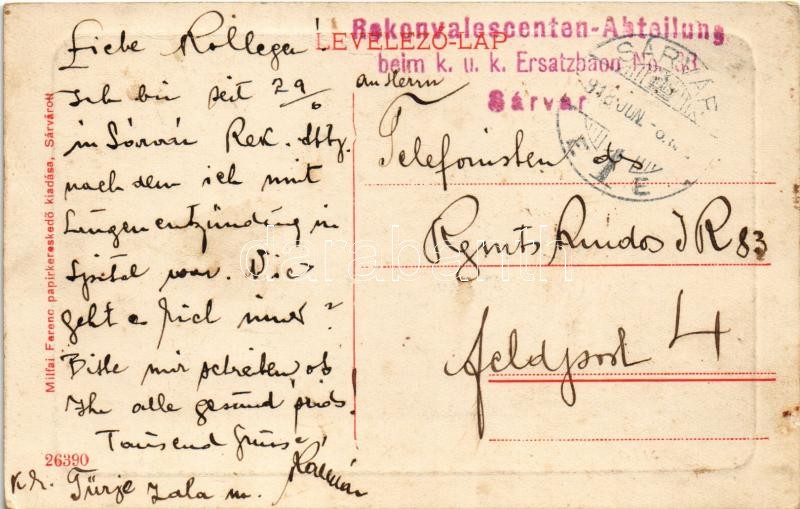 Liebe Kollegen!
LEVELEZŐ-LAP
Rekonvalescenten-Abteilung
beim k. u. k. Ersatzbaon No. 83
Sárvár
SÁRVÁR
918 JUN.
Ich bin seit 29/6
in Sárvár Rek. Abtg.
nach dem ich mit
Lungenentzündung in
Spital war. Wie
geht es Dich immer?
Bitte mir schreiben ob
Ihr alle gesund seids!
Tausend Grüsse
Kálmán
Türje Zala m.
an Herrn
Telefonisten des
Rgmts Kmdos IR 83
Feldpost 4
Milfai Ferenc papirkereskedő kiadása, Sárvárott
26390
darabanth